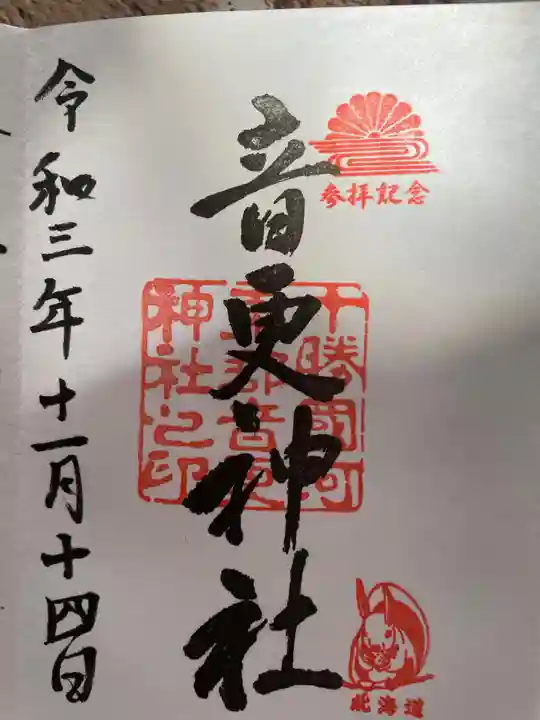 参拝記念
音更神社
千勝國河
東郡音更
神社之印
北海道
令和三年十一月十四日